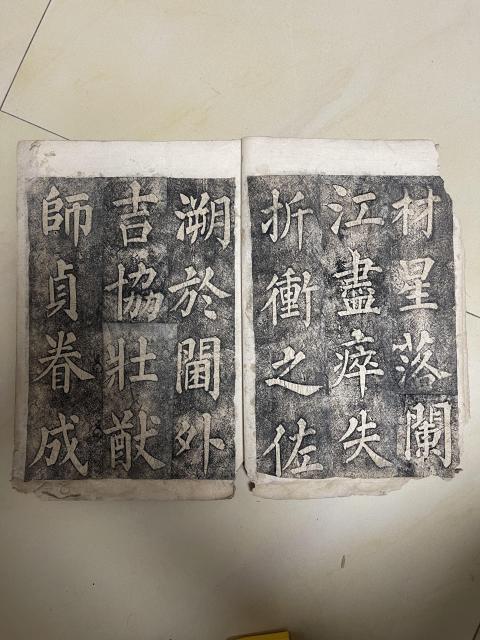 材星落闌
江盡瘁失
折衝之佐
溯於閫外
吉協壯猷
師貞眷成